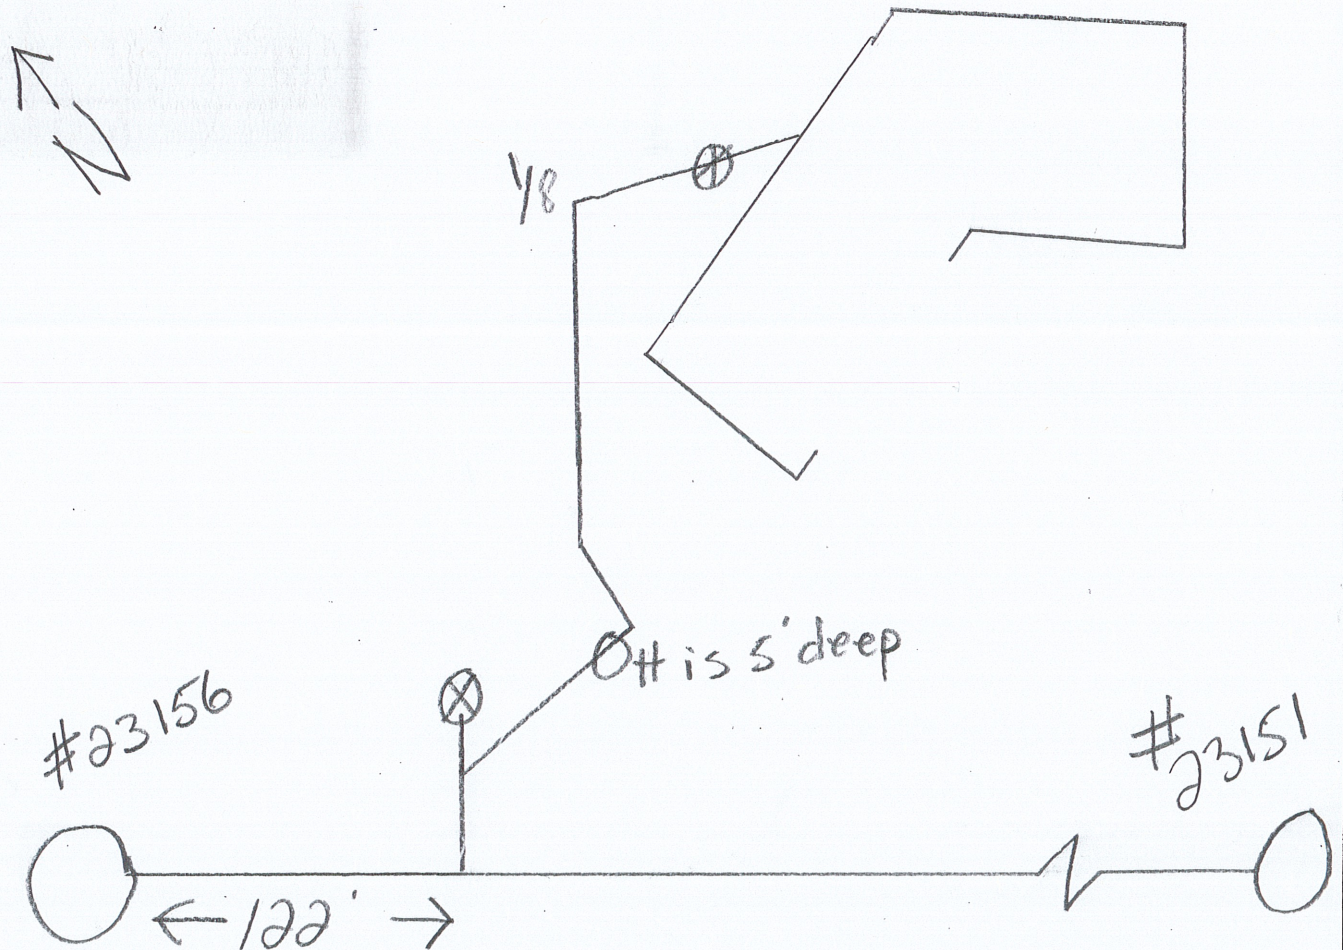 N
1/8
It is 5' deep
#23156
#23151
122'